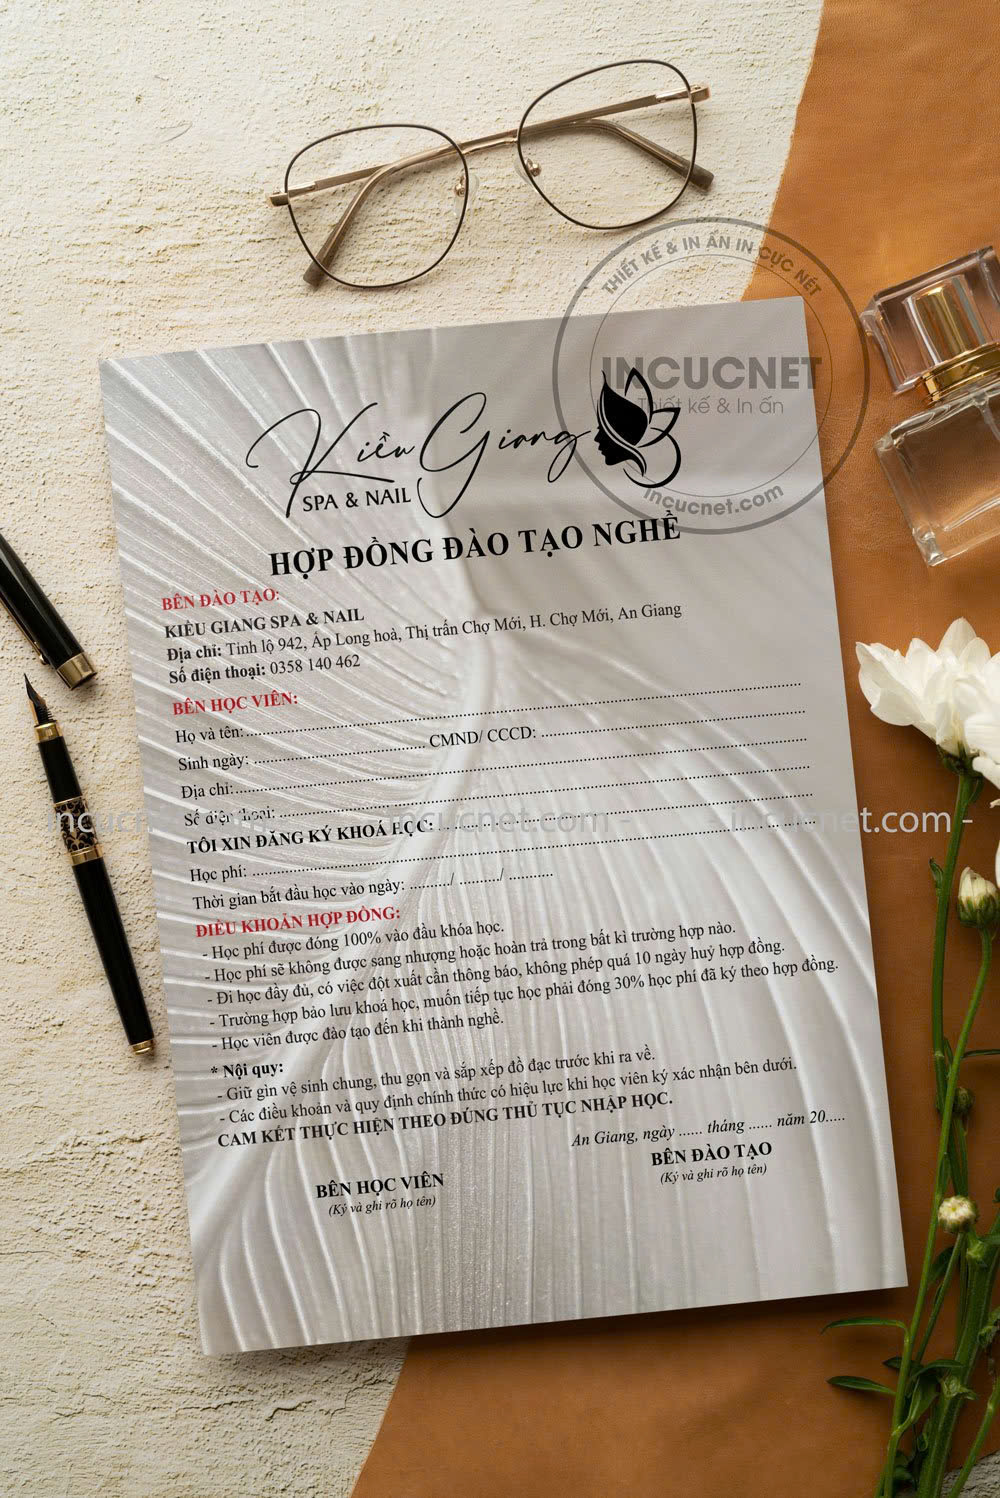 THIẾT KẾ & IN ẤN IN CỰC NÉT
INCUCNET
Thiết kế & In ấn
incucnet.com
Kiều Giang
SPA & NAIL
HỢP ĐỒNG ĐÀO TẠO NGHỀ
BÊN ĐÀO TẠO:
KIỀU GIANG SPA & NAIL
Địa chỉ: Tỉnh lộ 942, Ấp Long hoà, Thị trấn Chợ Mới, H. Chợ Mới, An Giang
Số điện thoại: 0358 140 462
BÊN HỌC VIÊN:
Họ và tên:
Sinh ngày: CMND/ CCCD:
Địa chỉ:
Số điện thoại:
incucnet.com - - incucnet.com -
TÔI XIN ĐĂNG KÝ KHOÁ HỌC:
Học phí:
Thời gian bắt đầu học vào ngày: ........../ ........../ ...........
ĐIỀU KHOẢN HỢP ĐỒNG:
- Học phí được đóng 100% vào đầu khóa học.
- Học phí sẽ không được sang nhượng hoặc hoàn trả trong bất kì trường hợp nào.
- Đi học đầy đủ, có việc đột xuất cần thông báo, không phép quá 10 ngày huỷ hợp đồng.
- Trường hợp bảo lưu khoá học, muốn tiếp tục học phải đóng 30% học phí đã ký theo hợp đồng.
- Học viên được đào tạo đến khi thành nghề.
* Nội quy:
- Giữ gìn vệ sinh chung, thu gọn và sắp xếp đồ đạc trước khi ra về.
- Các điều khoản và quy định chính thức có hiệu lực khi học viên ký xác nhận bên dưới.
CAM KẾT THỰC HIỆN THEO ĐÚNG THỦ TỤC NHẬP HỌC.
An Giang, ngày ...... tháng ...... năm 20.....
BÊN ĐÀO TẠO
(Ký và ghi rõ họ tên)
BÊN HỌC VIÊN
(Ký và ghi rõ họ tên)